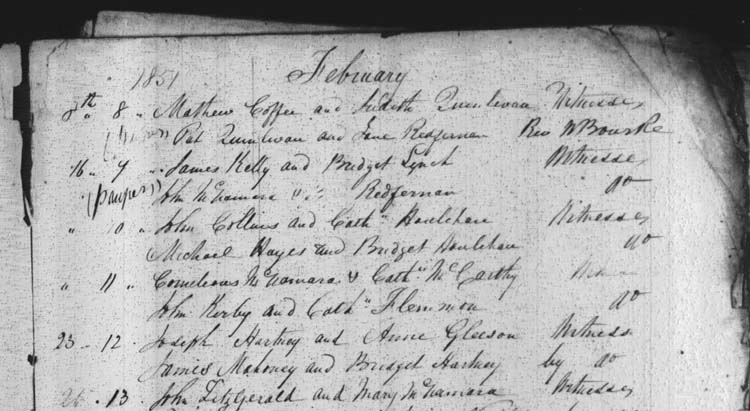 1851 February
8th " 8 " Mathew Coffee and Judith Quinlivan Witnesses
Pat Quinlivan and Jane Redfernan Rev W Bourke
16 " 9 " James Kelly and Bridget Lynch Witnesses
(pauper) John McNamara & Redfernan do
" 10 " John Collins and Cathn Houlehan Witnesses
Michael Hayes and Bridget Houlehan do
" 11 " Cornelious McNamara & Cathn McCarthy
John Kerby and Cathn Flemmon do
23 - 12 . Joseph Hartney and Anne Gleeson Witness
James Mahoney and Bridget Hartney by do
26 . 13 John Fitzgerald and Mary McNamara Witnesses